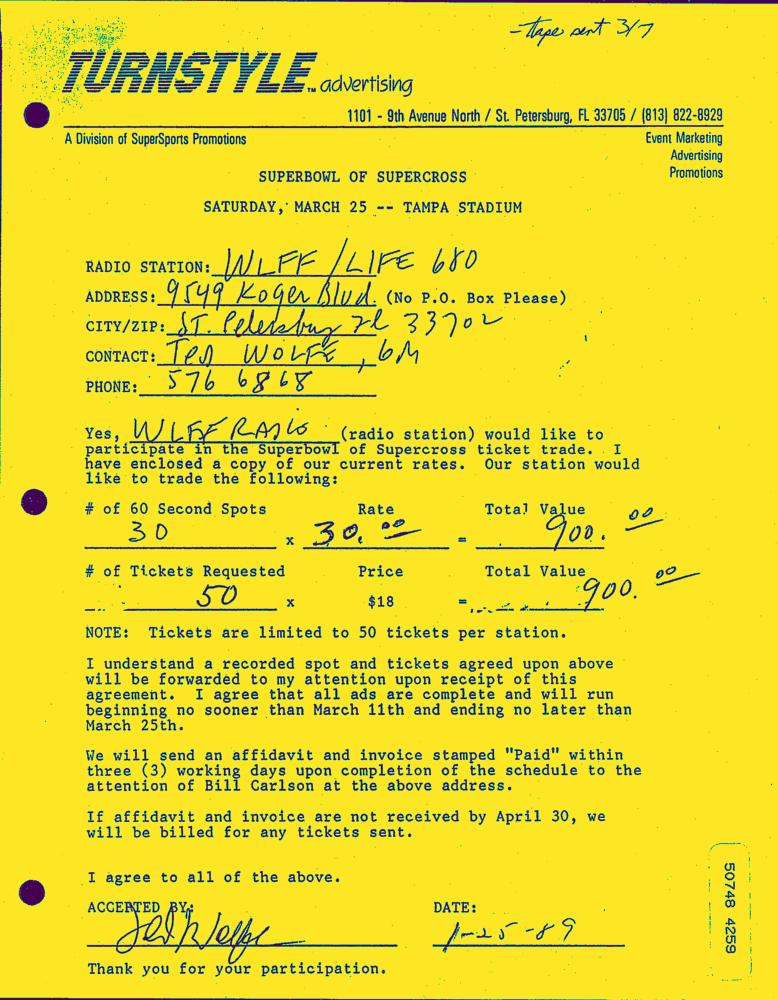 - tape sent 3/7
TURNSTYLE™ advertising
1101 - 9th Avenue North / St. Petersburg, FL 33705 / (813) 822-8929
A Division of SuperSports Promotions
Event Marketing
Advertising
Promotions
SUPERBOWL OF SUPERCROSS
SATURDAY, MARCH 25 -- TAMPA STADIUM
RADIO STATION: WLFF / LIFE 680
ADDRESS: 9549 Koger Blvd. (No P.O. Box Please)
CITY/ZIP: ST. Petersburg Fl 33702
CONTACT: Ted WOLFE, GM
PHONE: 576 6868
Yes, WLFF RADIO (radio station) would like to
participate in the Superbowl of Supercross ticket trade. I
have enclosed a copy of our current rates. Our station would
like to trade the following:
# of 60 Second Spots Rate Total Value
30 x 30.00 = 900.00
# of Tickets Requested Price Total Value
50 x $18 = 900.00
NOTE: Tickets are limited to 50 tickets per station.
I understand a recorded spot and tickets agreed upon above
will be forwarded to my attention upon receipt of this
agreement. I agree that all ads are complete and will run
beginning no sooner than March 11th and ending no later than
March 25th.
We will send an affidavit and invoice stamped "Paid" within
three (3) working days upon completion of the schedule to the
attention of Bill Carlson at the above address.
If affidavit and invoice are not received by April 30, we
will be billed for any tickets sent.
I agree to all of the above.
ACCEPTED BY: DATE:
Ted Wolfe 1-25-89
Thank you for your participation.
50748 4259